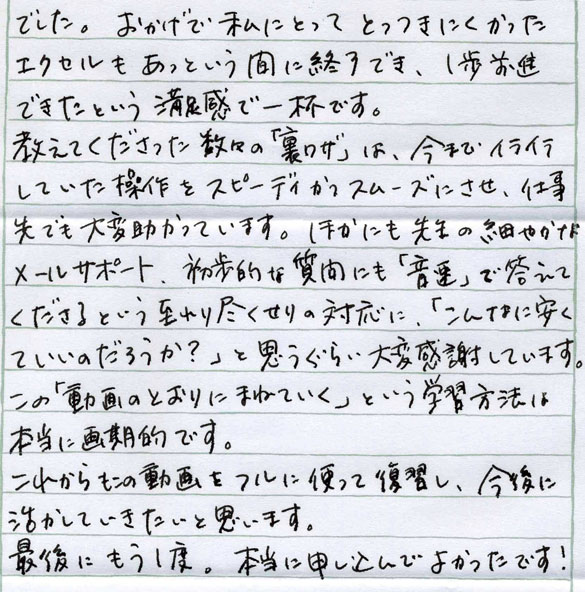 でした。おかげで私にとってとっつきにくかった
エクセルもあっという間に終了でき、1歩前進
できたという満足感で一杯です。
教えてくださった数々の「裏ワザ」は、今までイライラ
していた操作をスピーディかつスムーズにさせ、仕事
先でも大変助かっています。ほかにも先生の細やかな
メールサポート、初歩的な質問にも「音速」で答えて
くださるという至れり尽くせりの対応に、「こんなに安く
ていいのだろうか?」と思うぐらい大変感謝しています。
この「動画のとおりにまねていく」という学習方法は
本当に画期的です。
これからもこの動画をフルに使って復習し、今後に
活かしていきたいと思います。
最後にもう1度。本当に申し込んでよかったです!